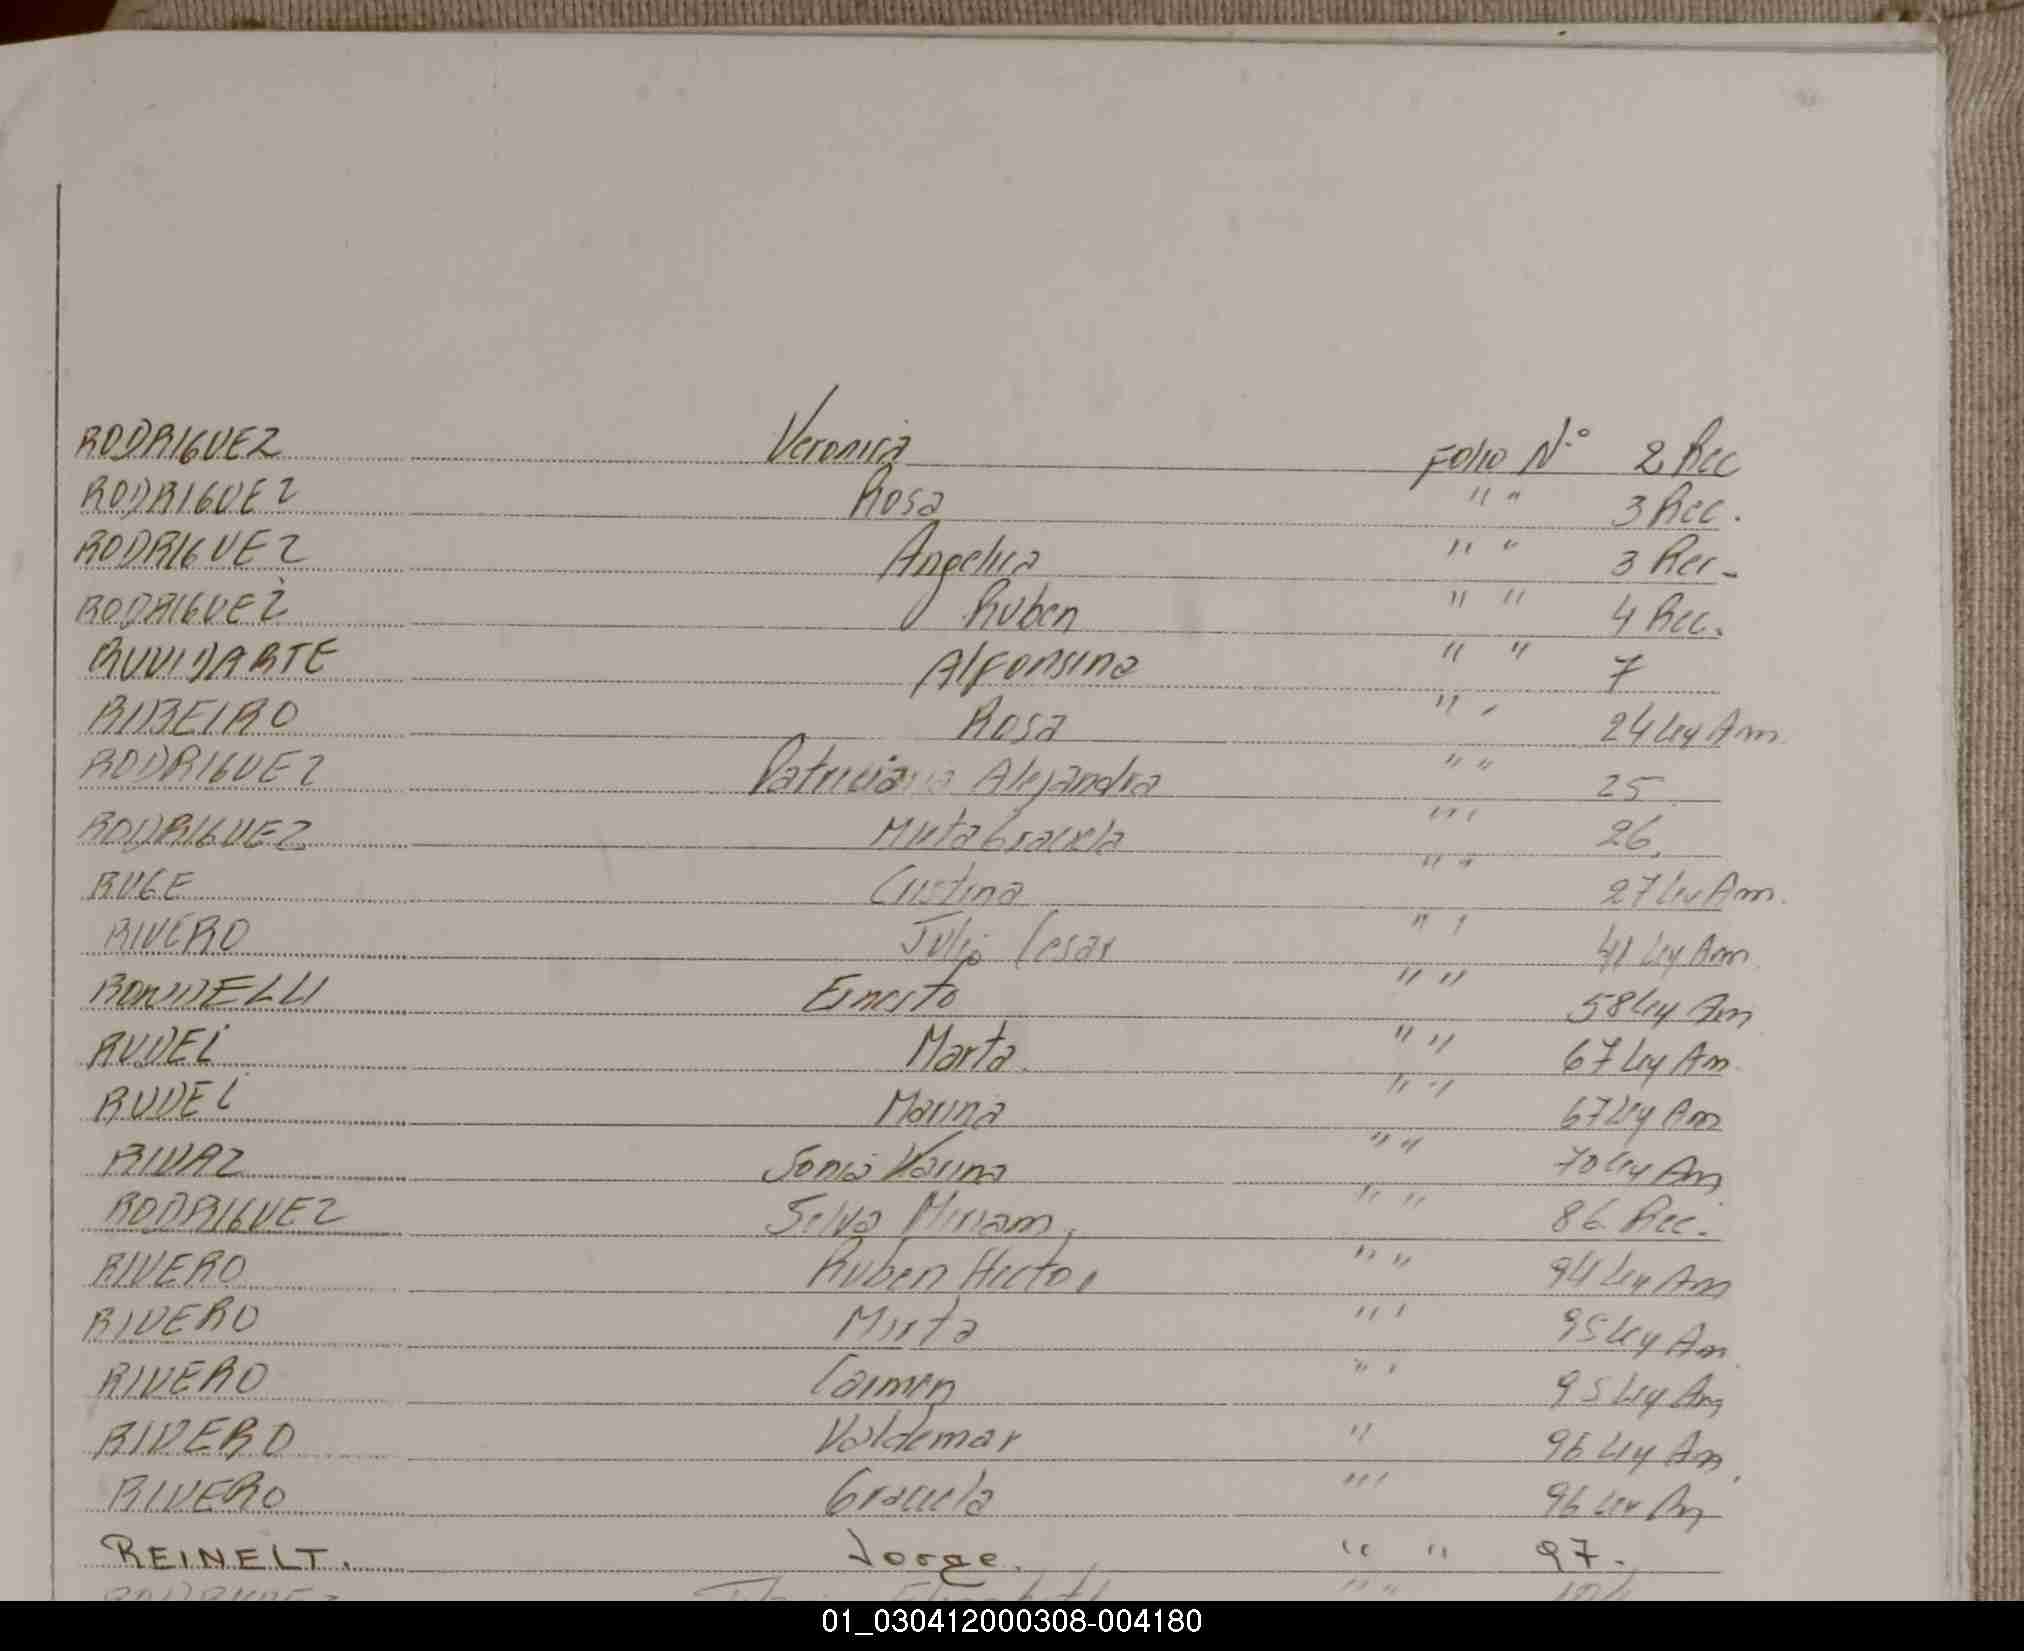 RODRIGUEZ Veronica Folio N.° 2 Rec
RODRIGUEZ Rosa " " 3 Rec.
RODRIGUEZ Angelica " " 3 Rec-
RODRIGUEZ Ruben " " 4 Rec.
RUVIDARTE Alfonsina " " 7
RIBEIRO Rosa " " 24 Ley Am
RODRIGUEZ Patricia Alejandra " " 25
RODRIGUEZ Mirta Graciela " " 26.
RUGE Cristina " " 27 Ley Am.
RIVERO Julio Cesar " " 41 Ley Am
RONDELLI Ernesto " " 58 Ley Am
Marta " " 67 Ley Am
Marina " " 67 Ley Am
RIVAZ Sonia Karina " " 70 Ley Am
RODRIGUEZ Selva Miriam, " " 86 Rec.
RIVERO Ruben Hector " " 94 Ley Am
RIVERO Mirta " " 95 Ley Am
RIVERO Carmen " " 95 Ley Am
RIVERO Valdemar " 96 Ley Am.
RIVERO Graciela " " 96 Ley Am
REINELT. Jorge. " " 97.
01_030412000308-004180